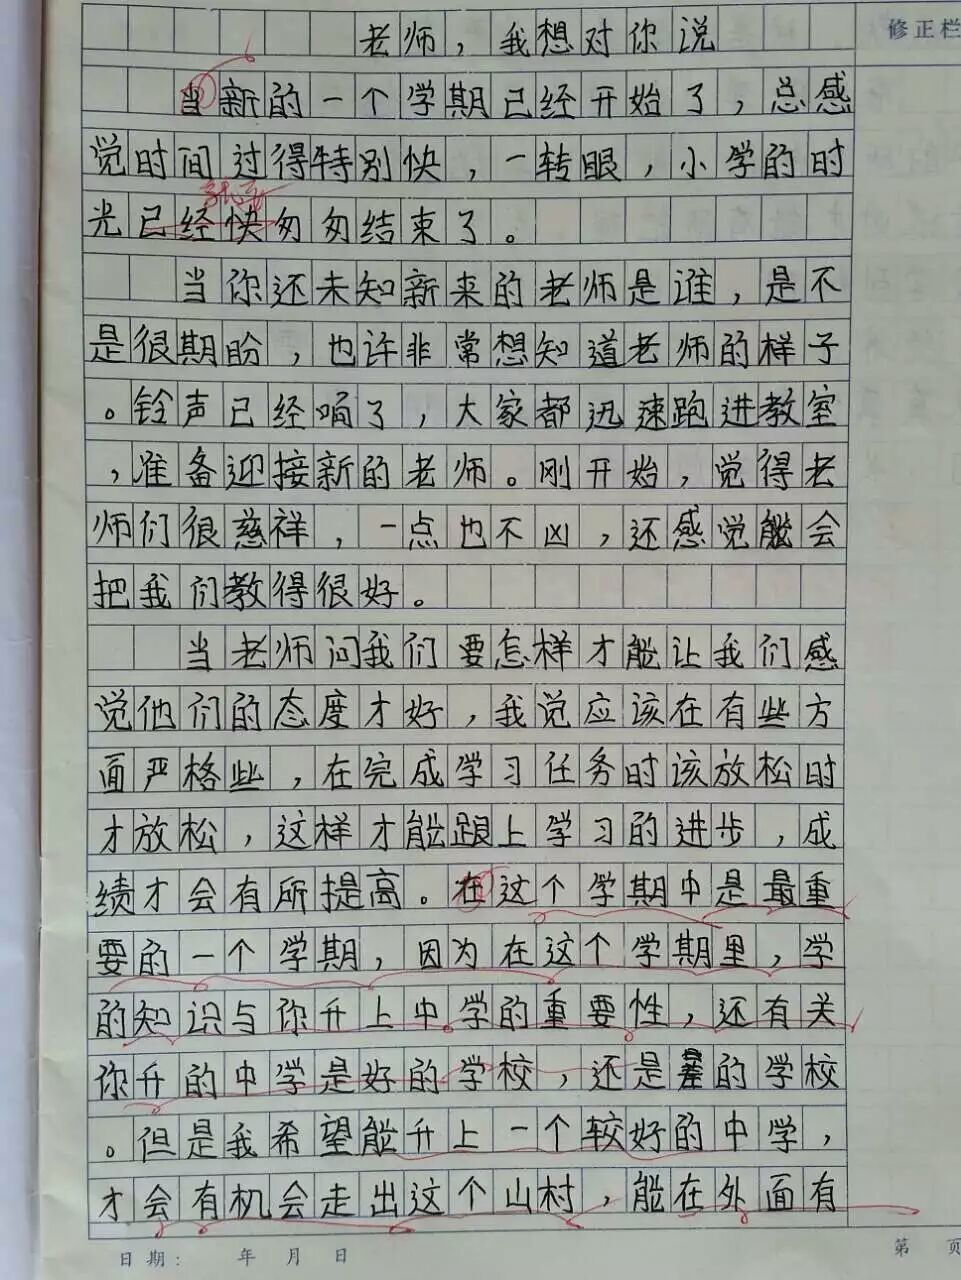 修正栏
老师，我想对你说
当新的一个学期已经开始了，总感
觉时间过得特别快，一转眼，小学的时
光已经快匆匆结束了。
当你还未知新来的老师是谁，是不
是很期盼，也许非常想知道老师的样子
。铃声已经响了，大家都迅速跑进教室
，准备迎接新的老师。刚开始，觉得老
师们很慈祥，一点也不凶，还感觉能会
把我们教得很好。
当老师问我们要怎样才能让我们感
觉他们的态度才好，我觉应该在有些方
面严格些，在完成学习任务时该放松时
才放松，这样才能跟上学习的进步，成
绩才会有所提高。在这个学期中是最重
要的一个学期，因为在这个学期里，学
的知识与你升上中学的重要性，还有关
你升的中学是好的学校，还是差的学校
。但是我希望能升上一个较好的中学，
才会有机会走出这个山村，能在外面有
日期： 年 月 日
第 页